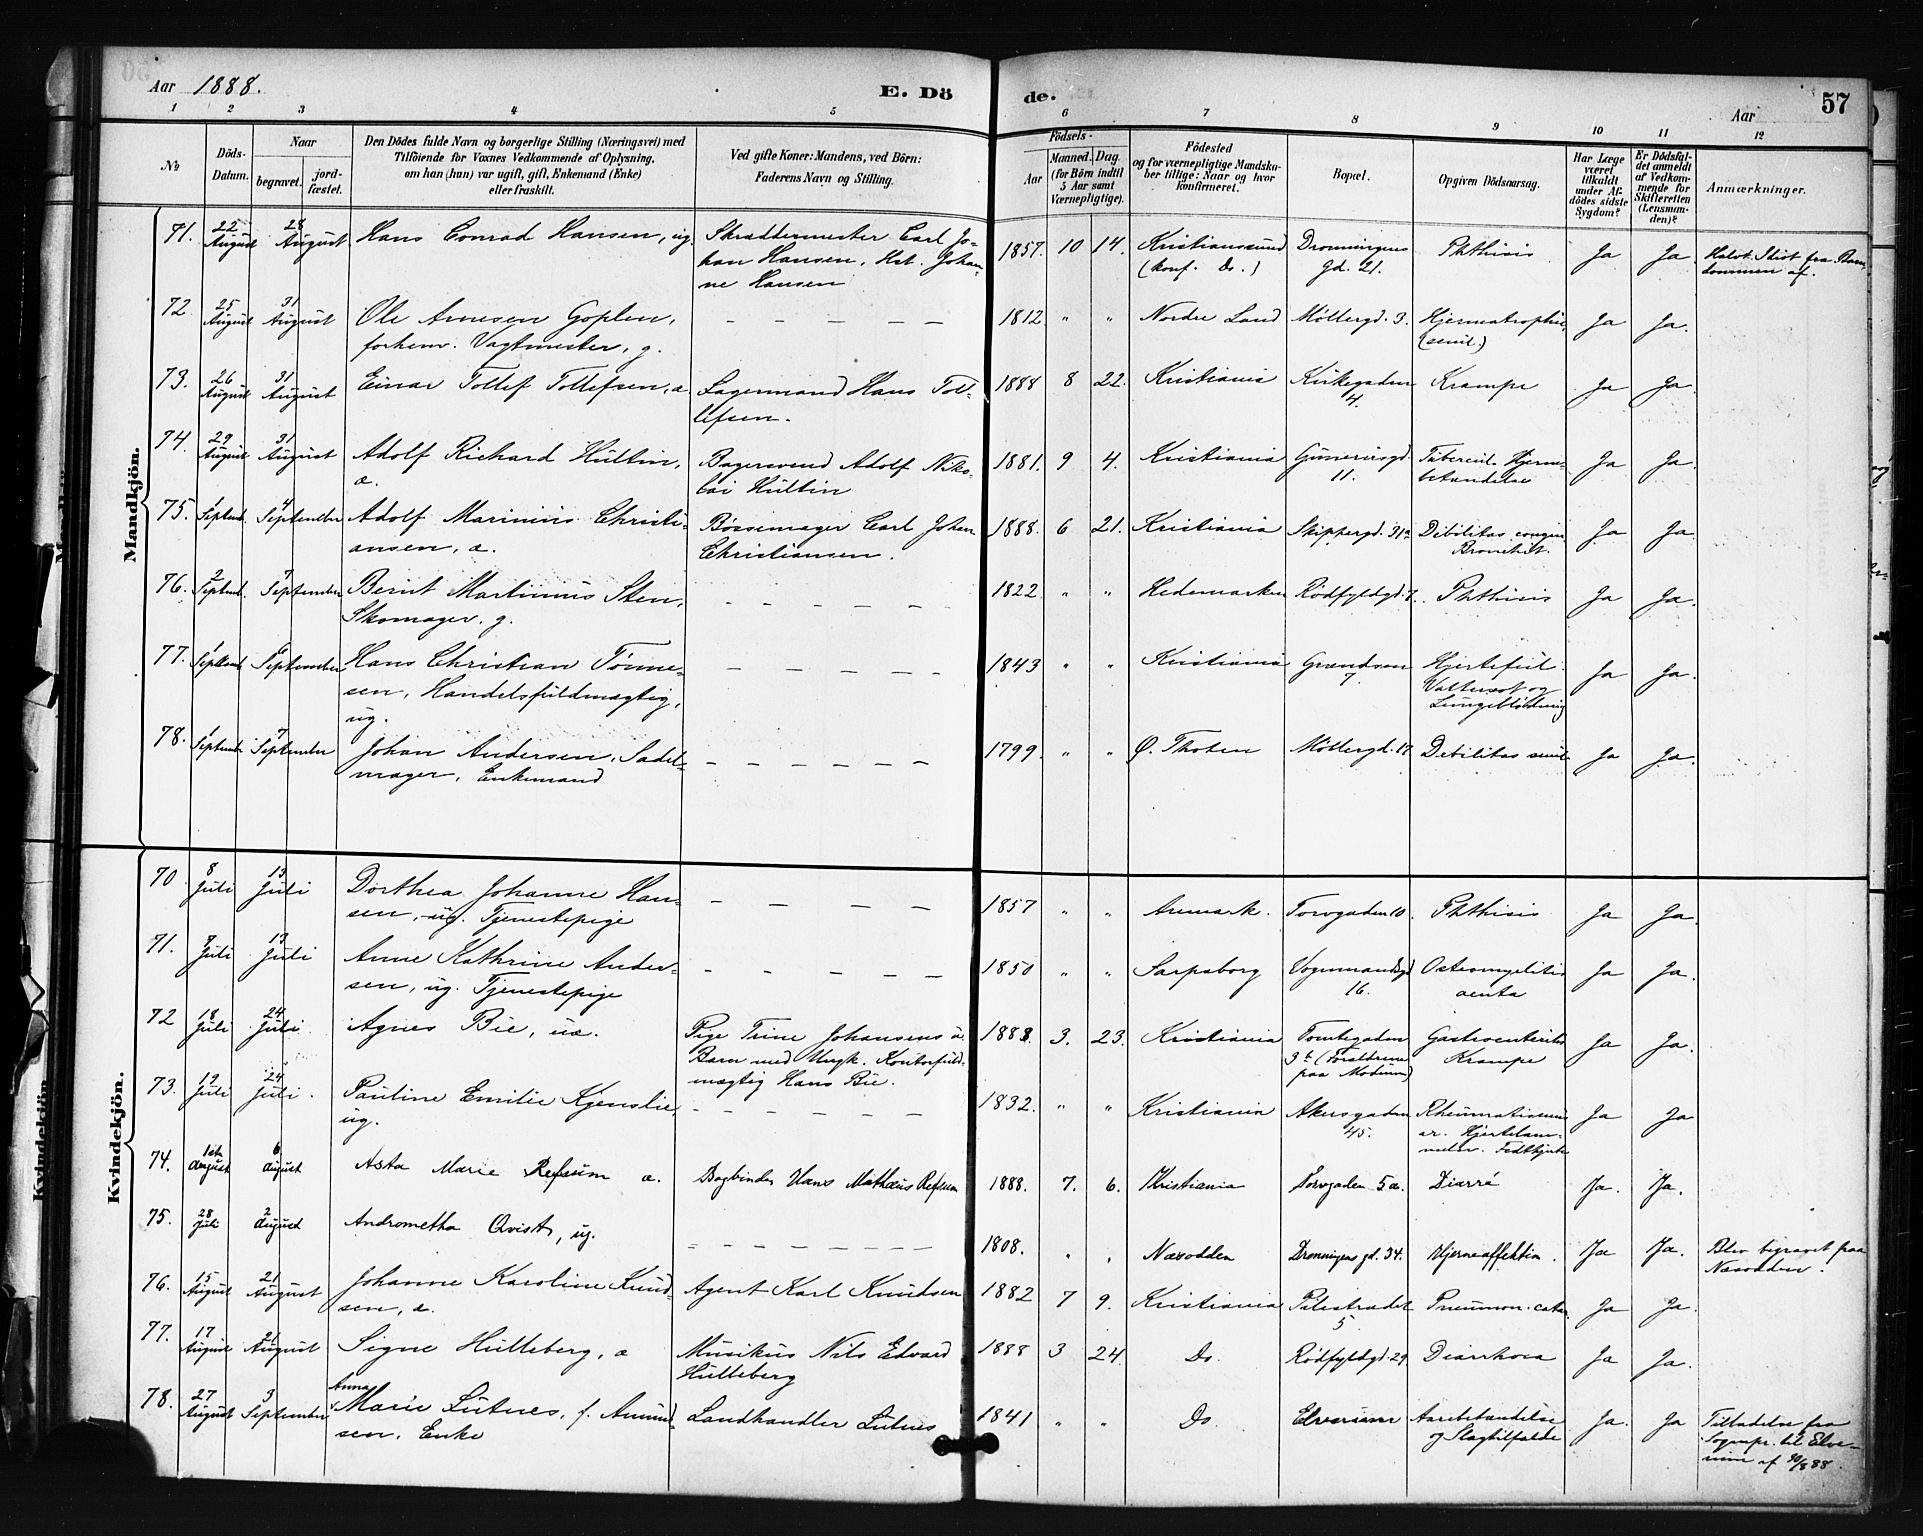 Aar 1888. E. Dö de. Aar 57
1 2 3 4 5 6 7 8 9 10 11 12
No. Döds-Datum. Naar begravet. jordfæstet. Den Dödes fulde Navn og borgerlige Stilling (Næringsvei) med Tilföiende for Voxnes Vedkommende af Oplysning, om han (hun) var ugift, gift, Enkemand (Enke) eller fraskilt. Ved gifte Koner: Mandens, ved Börn: Faderens Navn og Stilling. Födsels- Aar Maaned. Dag. (for Börn indtil 5 Aar samt Værnepligtige). Födested og for værnepligtige Mandskaber tillige: Naar og hvor konfirmeret. Bopæl. Opgiven Dödsaarsag. Har Læge været tilkaldt under Afdödes sidste Sygdom? Er Dödsfaldet anmeldt af Vedkommende for Skifteretten (Lensmanden)? Anmærkninger.
Mandkjön.
71. 22 August 28 August Hans Conrad Hansen, ug. Skræddermester Carl Johan Hansen, Hst. Johanne Hansen 1857 10 14. Kristianssund (konf. Do.) Dronningens Gd. 21. Phthisis Ja Ja
72 25 August 31 August Ole Arnesen Goplen, forhenv. Vagtmester, g. — — — — — 1812 " " Nordre Land Møllergd. 3. Hjerneatrophie (senil.) Ja Ja.
73. 26 August 31 August Einar Tollef Tollefsen, æ. Lagermand Hans Tollefsen. 1888 8 22. Kristiania Kirkegaden 4. Krampe Ja Ja.
74 29 August 31 August Adolf Richard Hultin, æ. Bagersvend Adolf Nikolai Hultin 1881. 9 4. Kristiania Gunerusgd. 11. Tubercul. Hjernebetændelse Ja Ja.
75. 1 Septemb. 4 September Adolf Marinius Christiansen, æ. Bøssemager Carl Johan Christiansen. 1888. 6 21. Kristiania Skippergd. 31a Debilitas congen. Bronchit. Ja Ja
76. 2 Septemb. 7 September Bernt Martinius Sten, Skomager. g. — — — — — — 1822 " " Hedemarken Rødfyldgd. 7. Phthisis Ja Ja.
77. Septemb. September Hans Christian Tønnesen, Handelsfuldmægtig, ug. — — — — — 1843 " " Kristiania Grændsen 7. Hjertefeil Vattersot og Lungeblødning Ja Ja.
78. Septembr 7 September Johan Andersen, Sadelmager, Enkemand — — — — — — 1799 " " Ø. Thoten Møllergd. 17 Debilitas senil Ja Ja.
Kvindekjön.
70 8 Juli 13 Juli Dorthea Johanne Hansen, ug. Tjenestepige — — — — 1857 " " Aremark. Torvgaden 10. Phthisis Ja Ja.
71. Juli 13 Juli Anne Kathrine Andersen, ug. Tjenestepige — — — — — 1850 " " Sarpsborg Vognmandsgd 16. Osteomyelitis acuta Ja Ja.
72 18 Juli 24 Juli Agnes Bie, uæ. Pige Trine Johansens u. Barn med Ungk. Kontorfuldmægtig Hans Bie. 1888. 3. 23. Kristiania Tomtegaden 3b (Forældrene paa Modum) Gastroenterit. Krampe Ja Ja.
73. 19 Juli 24 Juli. Pauline Emilie Kjenslie, ug. — — — — — — 1832. " " Kristiania Akersgaden 45. Rheumatismus ar. Hjertelammelse. Fedthjerte Ja Ja
74. 1ste August 6 August Asta Marie Refsum æ. Bogbinder Hans Mathæus Refsum 1888. 7. 6. Kristiania Torvgaden 5a. Diarré Ja. Ja.
75. 28 Juli 2 August Andrometha Qvist, ug. — — — — — — — 1808. " " Næsodden Dronningens gd. 34. Hjerneaffektion. Ja Ja. Blev begravet paa Næsodden.
76. 15 August 21 August Johanne Karoline Knudsen, æ. Agent Karl Knudsen 1882 7 9. Kristiania Pilestrædet 5 Pneumon. catar. Ja Ja.
77. 17 August 21 August Signe Hulleberg, æ Musikus Nils Edvard Hulleberg 1888 3 24. Do. Rødfyldgd. 29 Diarrhoea Ja Ja.
78. 27 August 3 September Anna Marie Lutnes, f. Amundsen, Enke Landhandler Lutnes 1841 " " Do. Elverum Aarebetændelse og Slagtilfælde Ja. Ja Tilladelse fra Sognepr. til Elverum af 30/8 88.